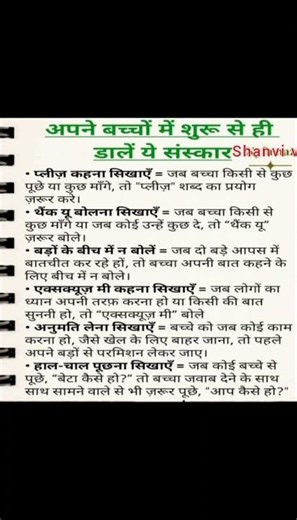 अपने बच्चों में शुरू से ही
डालें ये संस्कार Shanvi.v
• प्लीज़ कहना सिखाएँ = जब बच्चा किसी से कुछ
पूछे या कुछ माँगे, तो "प्लीज़" शब्द का प्रयोग
ज़रूर करे।
• थैंक यू बोलना सिखाएँ = जब बच्चा किसी से
कुछ माँगे या जब कोई उन्हें कुछ दे, तो "थैंक यू"
ज़रूर बोले।
• बड़ों के बीच में न बोलें = जब दो बड़े आपस में
बातचीत कर रहे हों, तो बच्चा अपनी बात कहने के
लिए बीच में न बोले।
• एक्सक्यूज़ मी कहना सिखाएँ = जब लोगों का
ध्यान अपनी तरफ़ करना हो या किसी की बात
सुननी हो, तो "एक्सक्यूज़ मी" बोले
• अनुमति लेना सिखाएँ = बच्चे को जब कोई काम
करना हो, जैसे खेल के लिए बाहर जाना, तो पहले
अपने बड़ों से परमिशन लेकर जाए।
• हाल-चाल पूछना सिखाएँ = जब कोई बच्चे से
पूछे, "बेटा कैसे हो?" तो बच्चा जवाब देने के साथ
साथ सामने वाले से भी ज़रूर पूछे, "आप कैसे हो?"